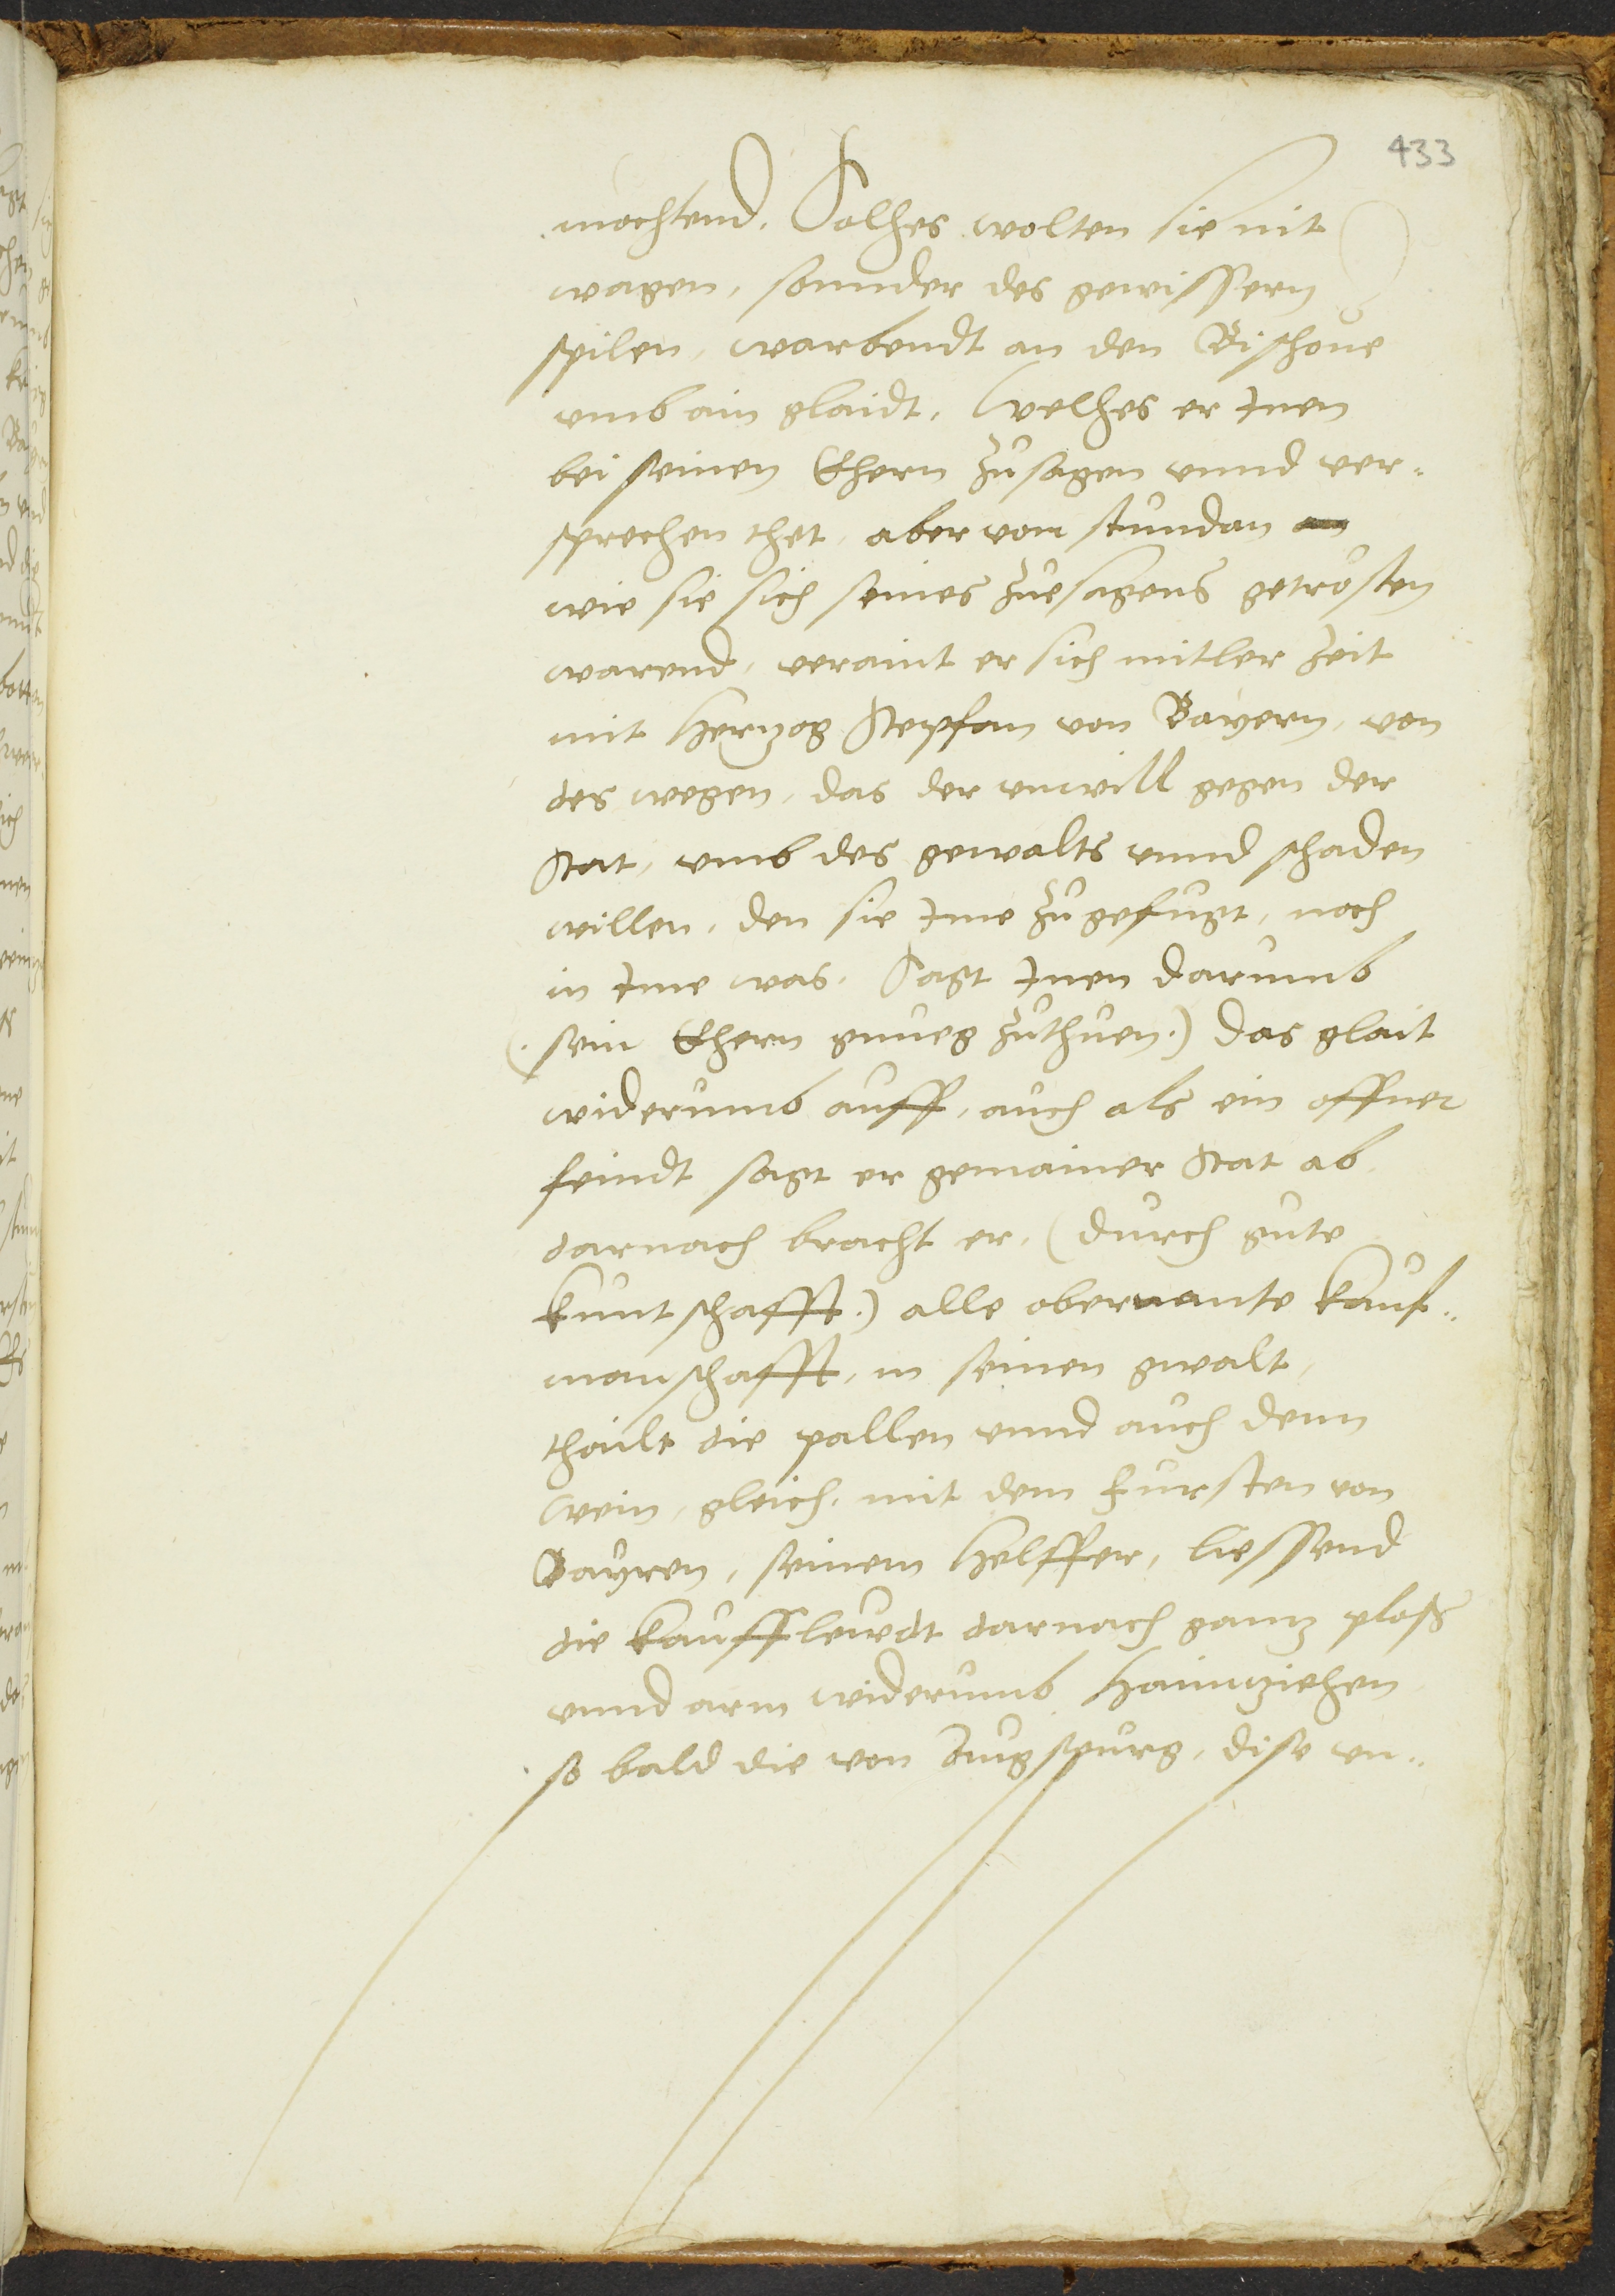 433
mochtend. Solhes wolten sie nit
wagen, sonnder des gewissern
spilen, warbendt an den Bischoue
vmb ain glaidt, Welhes er jnen
bei seinen Ehern zůsagen vnnd ver-
sprechen thet, aber von stundan
wie sie sich seines zuesagens getrosten
warend, veraint er sich mitler zeit
mit Hertzog Stepfan von Bayern, von
des wegen, das der vnwill gegen der
Stat, vmb des gewalts vnnd schaden
willen, den sie jme zůgefugt, noch
in jme was. Sagt jnen darumb
(. sein Ehern gnueg zůthuen.) das glait
widerumb auff, auch als ein offner
feindt sagt er gemainer Stat ab
darnach bracht er, (durch gute
kuntschafft.) alle obernante kauf-
manschafft, in seinen gwalt,
thailt die pallen vnnd auch denn
wein, gleich, mit dem fursten von
Bayren, seinem Helffer, liessend
die kauffleudt darnach gantz ploß
vnnd arm widerumb haimziehen
so bald die von Augspurg, dise un-